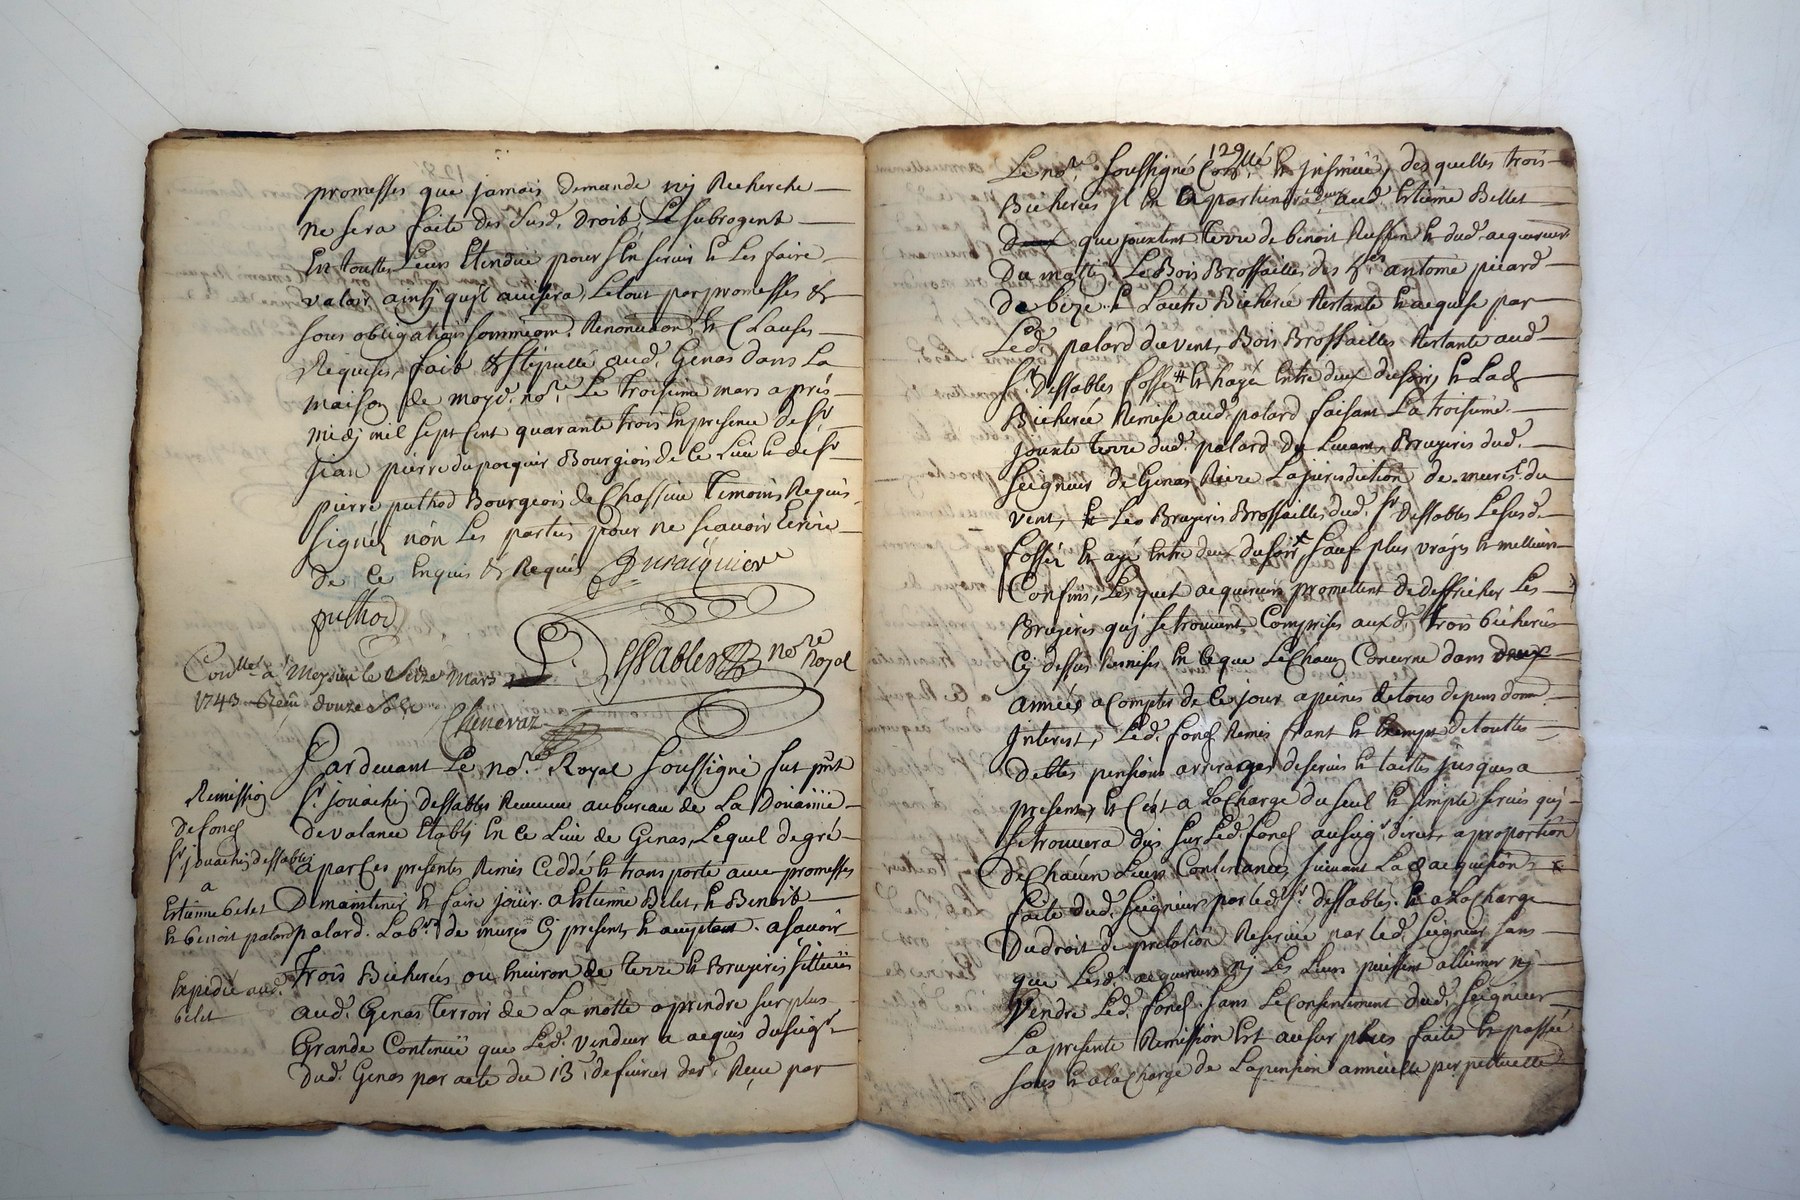 promesses que jamais demande ny Recherche
ne sera faite des susd. Droits, Le subrogent
En touttes Leurs Etendüe pour s'En servir et Les faire
valoir ainsy qu'il avisera, Le tout par promesses &
sous obligations Renonciaon et Clauses
Requises, fait & stipullé aud. Genas dans La
maison de moyd. nore. Le troisieme mars aprés
midy mil sept Cent quarante trois En presence de Sr
jean pierre Bourgeois de Ce Lieu et de Sr
pierre puthod Bourgeois de Chassieu Temoins Requis
signéz nón Les parties pour ne sçavoir Ecrire
de Ce Enquis & Requis
puthod
Dessables nore Royal
Conllé. a Meysieu le Seize Mars
1743 Receu douze sols
Chenevaz
Pardevant Le nore. Royal soussigné fut pnt
Remission
Sr. jouachin dessables Receveur au bureau de La Doüanne
De fond
De valance Etably En Ce Lieu de Genas, Lequel de gré
Sr jouachin dessables
a par Ces presentes Remis Ceddé et transporté avec promesses
a
Estienne belet
De maintenir et faire joüir. a Estienne Belet, et Benoit
et benoit palard
palard. Labrs de mures Cy presents et acceptant. asavoir
Expedié aud.
Trois Bicherées ou Environ de terre et Bruyeres sittüées
belet
aud. Genas Terroir de La motte a prendre sur plus
Grande Contenüe que Led. vendeur a acquis du seigr
dud. Genas par acte du 13e. de fevrier der. Reçu par
129
Le nore. soussigné Conllé. et jnsinüé, desquelles trois
Bicherées jl En apartiendra deux aud. Estienne Bellet
que jouxtent terre de benoit Ruffin et dud. acquereur
Du matin, Le Bois Brossailles des Srs antoine picard
De bize. et L'autre Bicherée Restante Et acquise par
Led. palard du vent, Bois Brossailles Restante aud.
Sr Dessables fossez # et hayes Entre deux du soir, et Lad.
Bicherée Remise aud. palard faisant La troisieme.
jouxte terre dud. palard du Levant, Bruyeres dud.
seigneur de Genas Riere La jurisdiction de mures du
vent, Les Bruyeres Brossailles dud. Sr Dessables Le susd.
fossez et ayes Entre deux du soir # sauf plus vrayes et melleurs
Confins, Lesquels acquereurs promettent de deffricher Les
Bruyeres quj se trouvent Comprises aux d. trois bicherées
Cy dessus Remises En Ce que Le Chacun Concerne dans deux
années a Compter de Ce jour a peines de tous depens dom.
jnterest, Led. fond Remis franc et Exempt de touttes
Debtes pensions arrerages de servis et taittes jusques a
present, et C'est a La Charge du seul et simple servis quj
se trouvera dus sur Led. fond au seigr direct, a proportion
De Chacun Leurs Contenances suivant La acquisition #
faite dud. seigneur par led. Sr. dessables. et a La Charge
Du droit de prelation Reservée par led. seigneur sans
que Lesd. acquereurs ny Les Leurs puissent aliener ny
Vendre Led. fond. sans Le Consentement dud. seigneur
La presente Remission Est au surplus faite et passée
sous et a la Charge de La pension annuelle perpetuelle